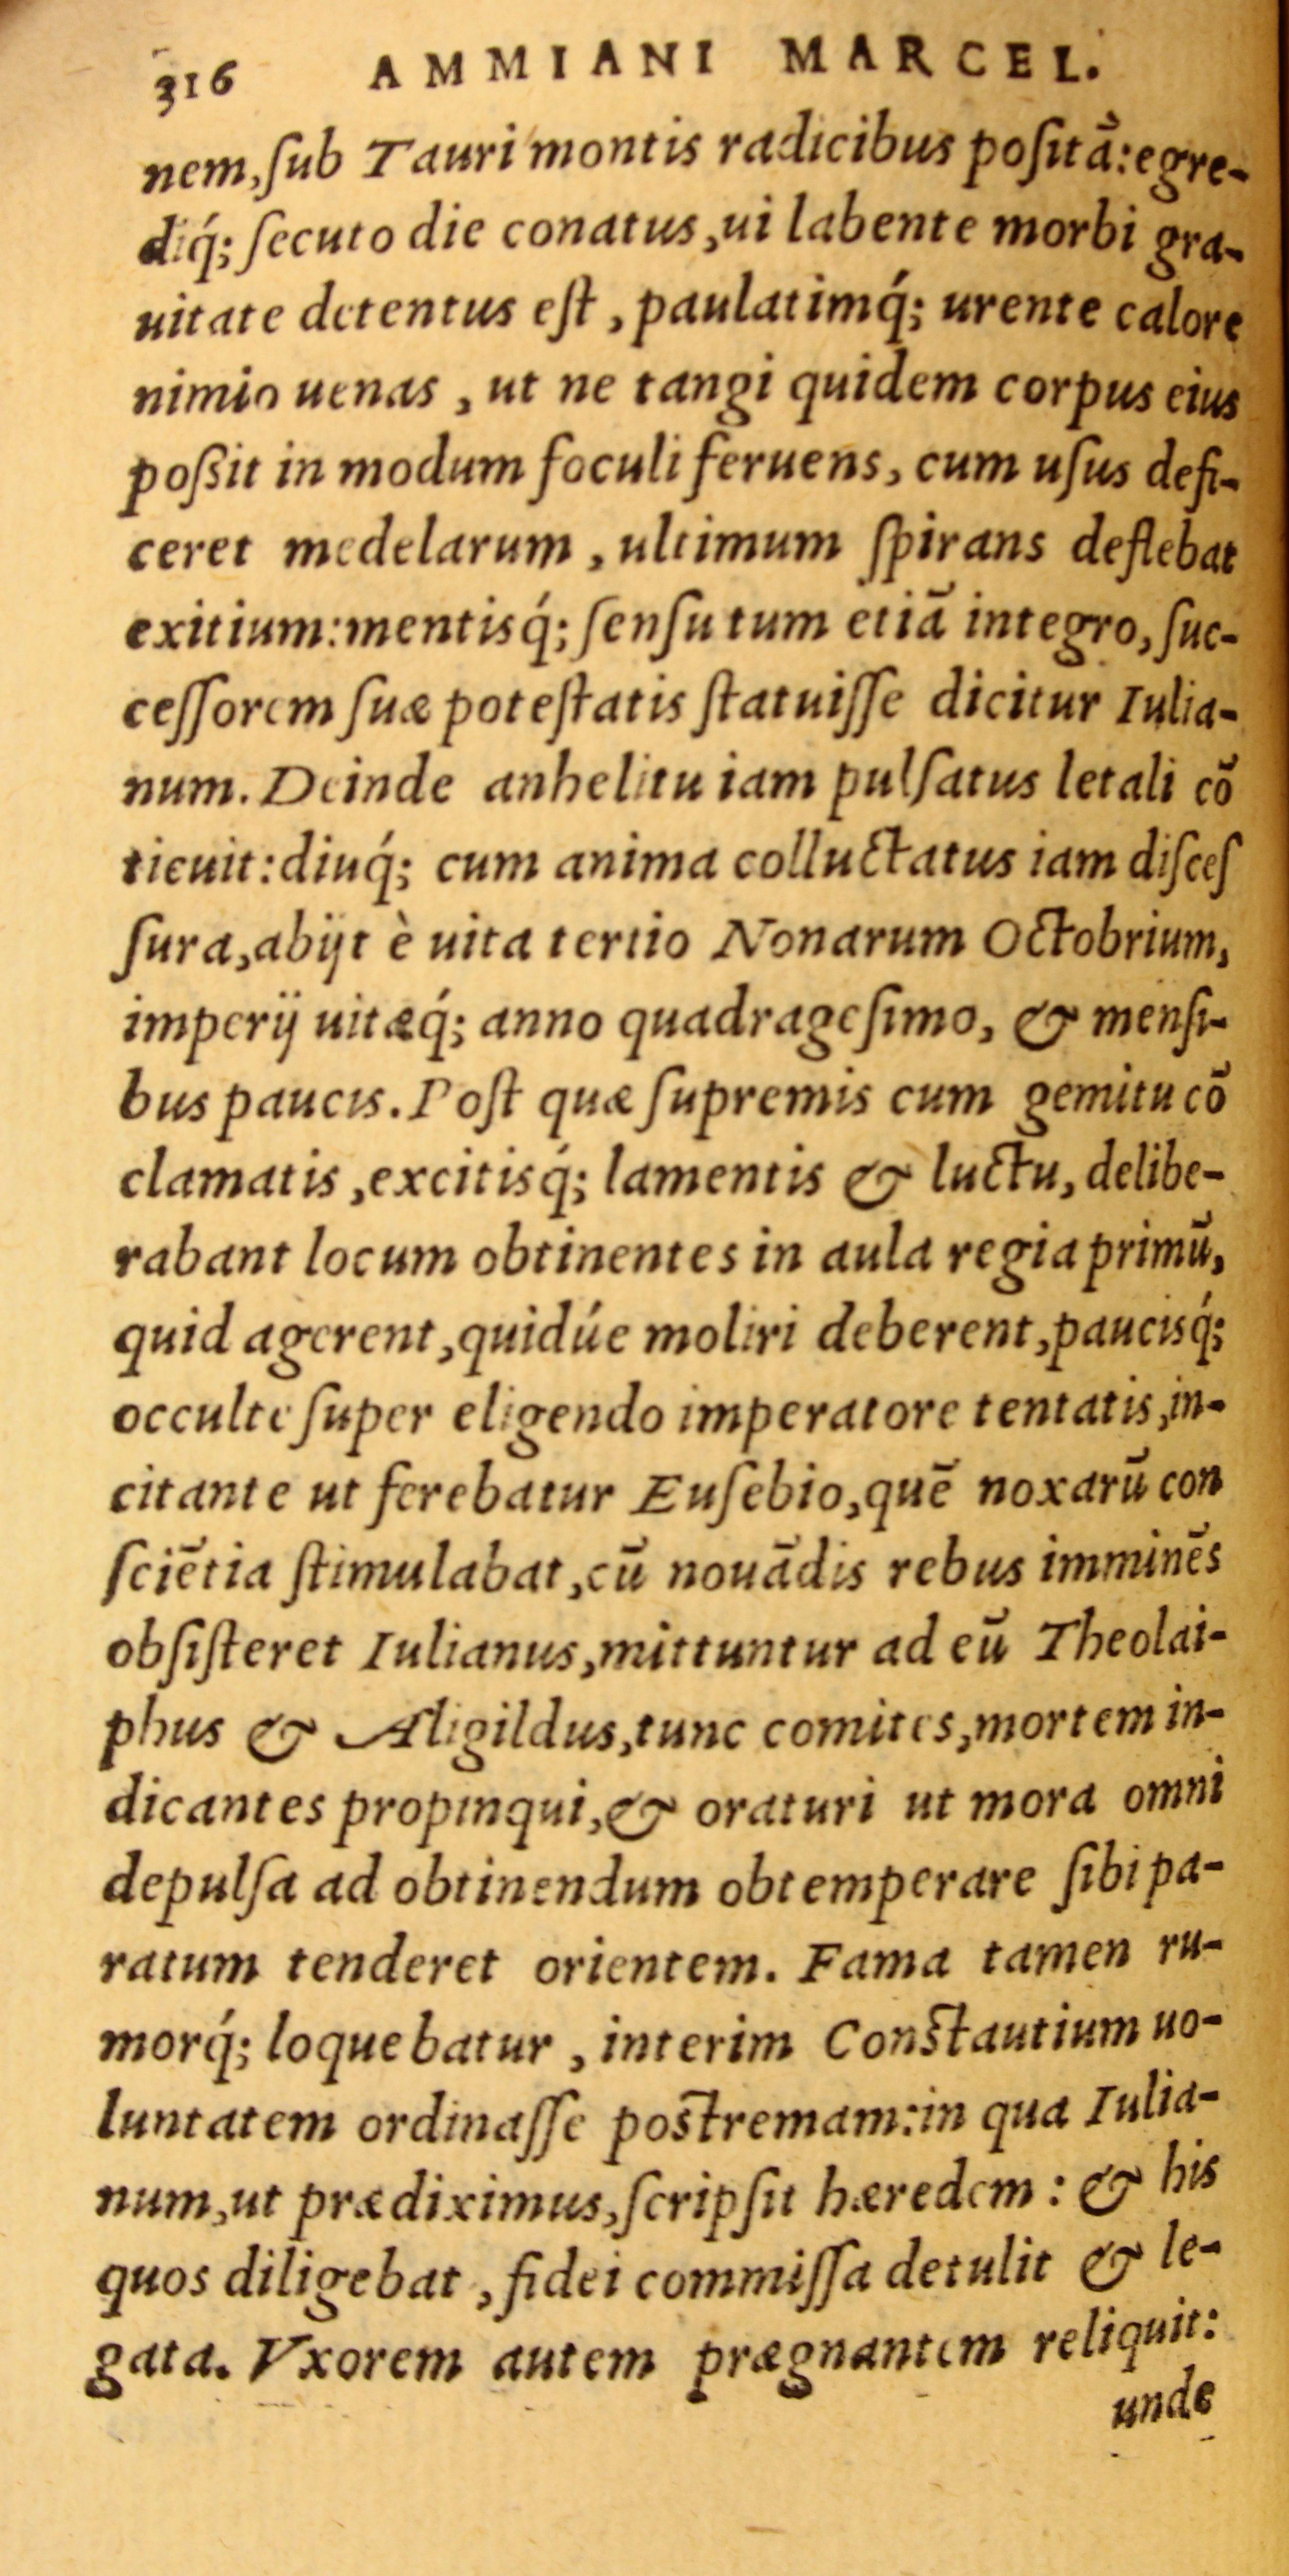 316 AMMIANI MARCEL.
nem, ſub Tauri montis radicibus poſitā: egre-
diq́; ſecuto die conatus, ui labente morbi gra-
uitate detentus eſt, paulatimq́; urente calore
nimio uenas, ut ne tangi quidem corpus eius
poßit in modum foculi feruens, cum uſus defi-
ceret medelarum, ultimum ſpirans deflebat
exitium: mentisq́; ſenſu tum etiā integro, ſuc-
ceſſorem ſuæ poteſtatis ſtatuiſſe dicitur Iulia-
num. Deinde anhelitu iam pulſatus letali cō
ticuit: diuq́; cum anima colluctatus iam diſceſ
ſura, abijt è uita tertio Nonarum Octobrium,
imperij uitæq́; anno quadrageſimo, & menſi-
bus paucis. Poſt quæ ſupremis cum gemitu cō
clamatis, excitisq́; lamentis & luctu, delibe-
rabant locum obtinentes in aula regia primū,
quid agerent, quidúe moliri deberent, paucisq́;
occulte ſuper eligendo imperatore tentatis, in-
citante ut ferebatur Euſebio, quē noxarū con
ſciētia ſtimulabat, cū nouādis rebus imminēs
obſiſteret Iulianus, mittuntur ad eū Theolai-
phus & Aligildus, tunc comites, mortem in-
dicantes propinqui, & oraturi ut mora omni
depulſa ad obtinendum obtemperare ſibi pa-
ratum tenderet orientem. Fama tamen ru-
morq́; loquebatur, interim Conſtautium uo-
luntatem ordinaſſe poſtremam: in qua Iulia-
num, ut prædiximus, ſcripſit hæredem: & his
quos diligebat, fidei commiſſa detulit & le-
gata. Vxorem autem prægnantem reliquit:
unde